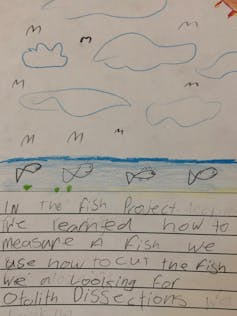 IN the fish Project
We learned how to
measure A fish We
use how to CUT the fish
We a Looking for
Otolith DissecTions